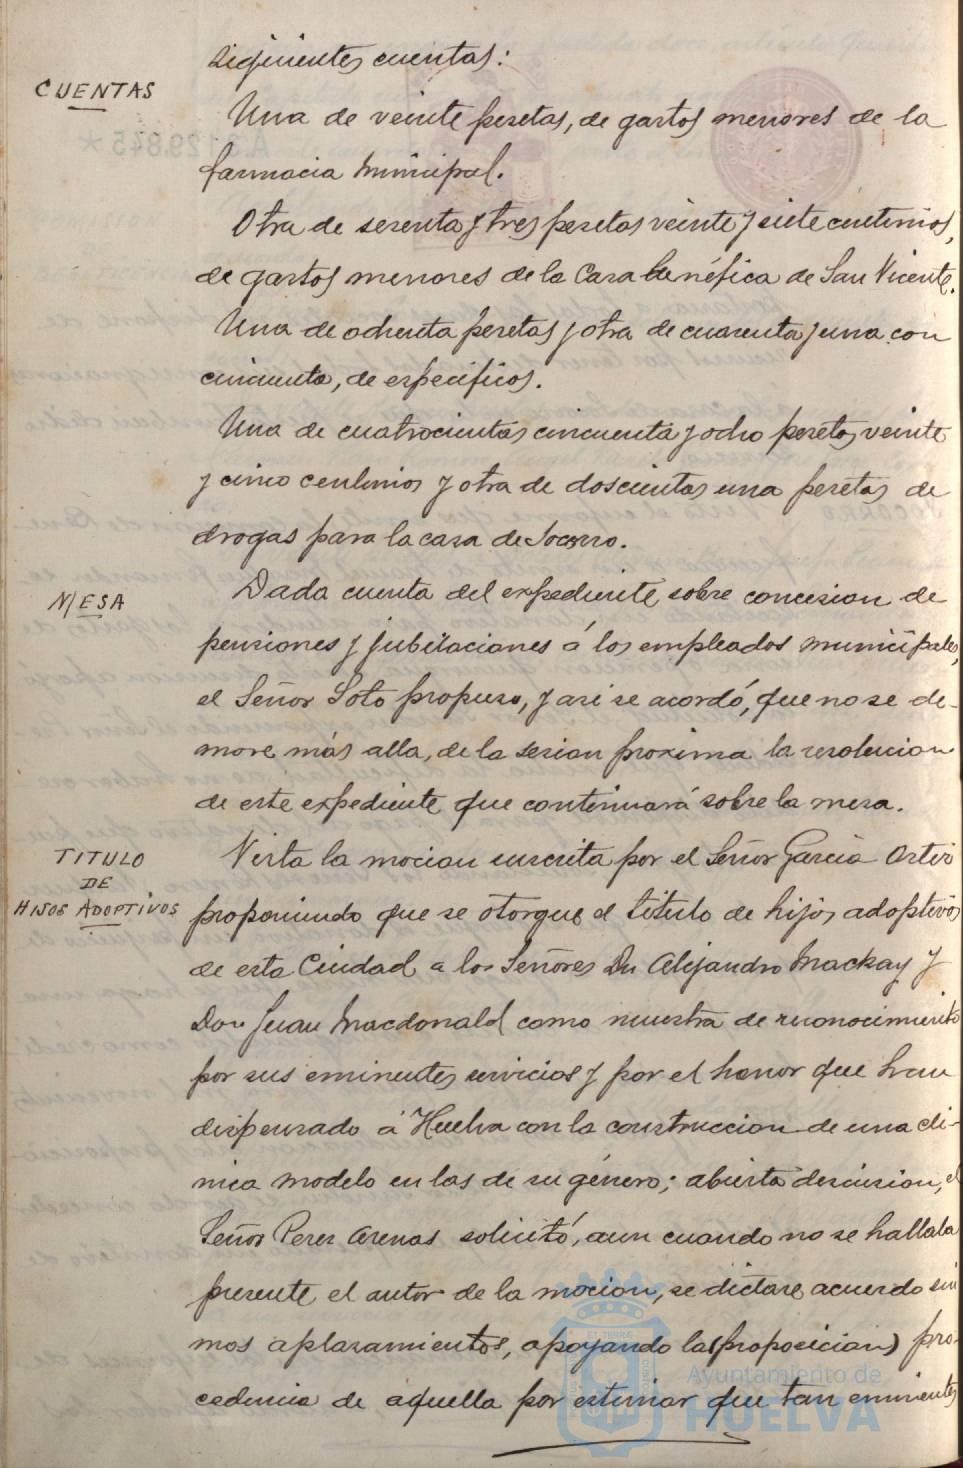 siguientes cuentas:
CUENTAS
Una de veinte pesetas, de gastos menores de la
farmacia Municipal.
Otra de sesenta y tres pesetas veinte y siete centimos,
de gastos menores de la Casa benéfica de San Vicente.
Una de ochenta pesetas y otra de cuarenta y una con
cincuenta, de especificos.
Una de cuatrocientas cincuenta y ocho pesetas veinte
y cinco centimos y otra de doscientas una pesetas de
drogas para la casa de Socorro.
MESA
Dada cuenta del expediente sobre concesion de
pensiones y jubilaciones á los empleados municipales,
el Señor Soto propuso, y asi se acordó, que no se de-
more más alla, de la sesion proxima la resolucion
de este expediente que continuará sobre la mesa.
TITULO
DE
HIJOS ADOPTIVOS
Vista la mocion suscrita por el Señor Garcia
proponiendo que se otorgue el titulo de hijos adoptivos
de esta Ciudad a los Señores Dn Alejandro Mackay y
Don Juan Macdonald como muestra de reconocimiento
por sus eminentes servicios y por el honor que han
dispensado á Huelva con la construccion de una cli-
nica modelo en las de su género; abierta discusion, el
Señor Perez Arenas solicitó, aun cuando no se hallaba
presente el autor de la mocion, se dictare acuerdo sin
mos aplazamientos, apoyando la (proposicion) pro-
cedencia de aquella por estimar que tan eminentes
Ayuntamiento de
HUELVA
A.3.129.845 *